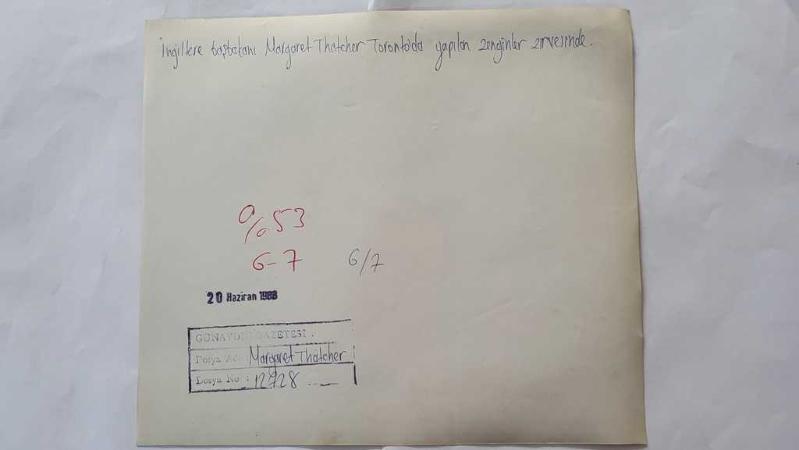 İngiltere başbakanı Margaret Thatcher Toronto'da yapılan zenginler zirvesinde.
%53
6-7 6/7
20 Haziran 1988
GÜNAYDIN GAZETESİ
Dosya Adı Margaret Thatcher
Dosya No : 12728